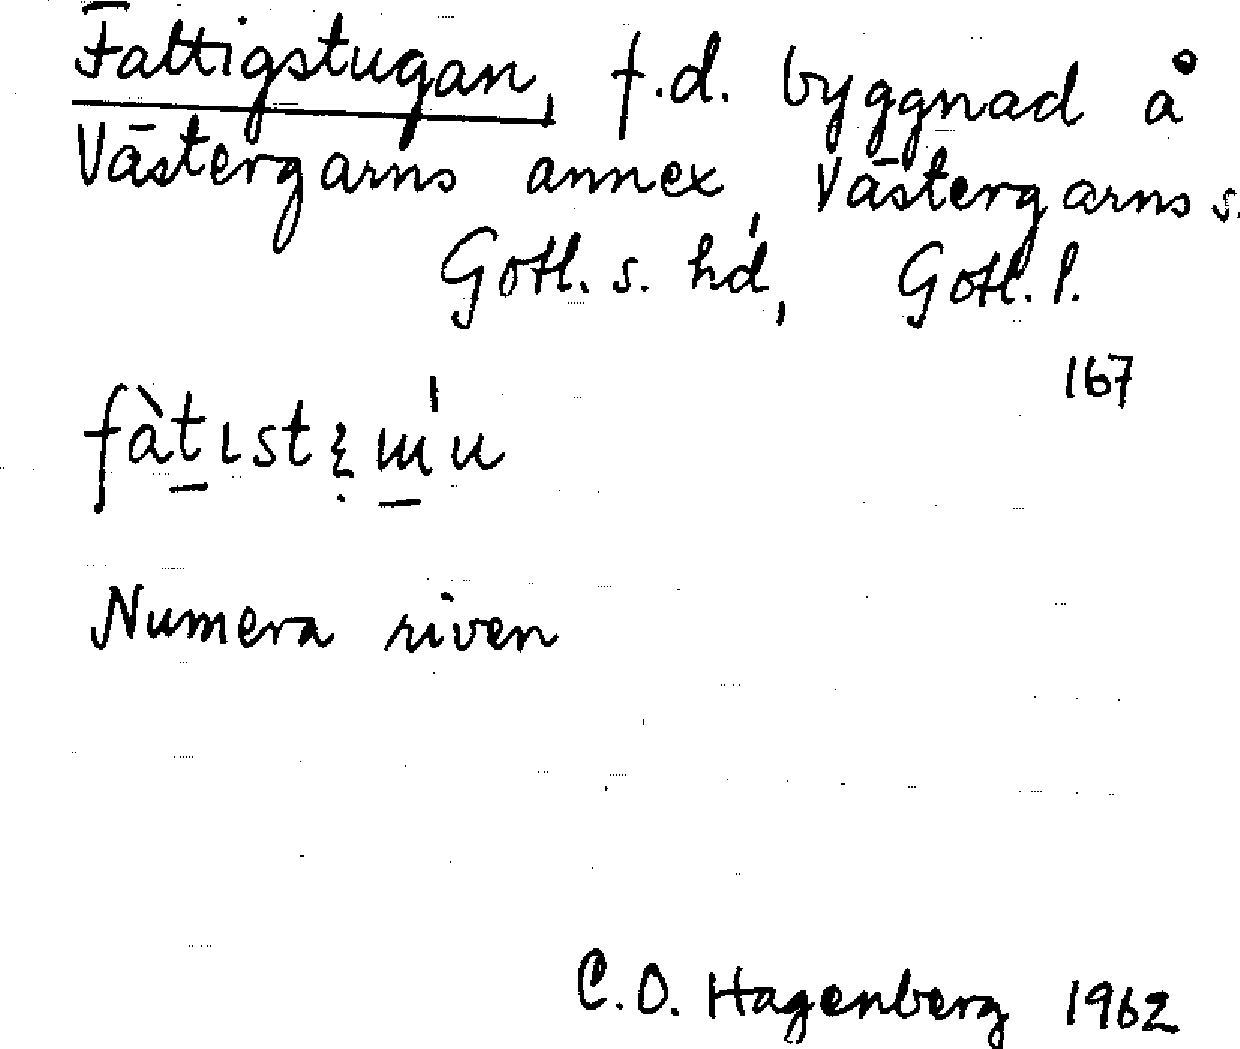 Fattigstugan, f.d. byggnad å
Västergarns annex, Västergarns s.
Gotl. s. hd, Gotl. l.
167
Numera riven
C.O. Hagenberg 1962